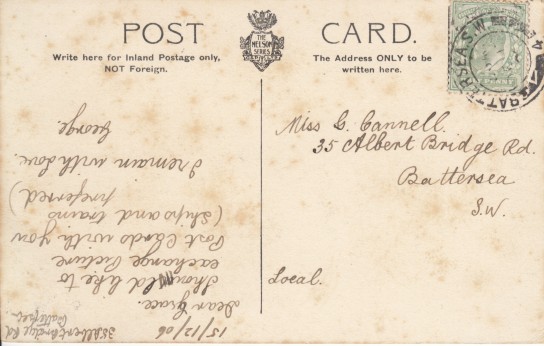 POST CARD.
THE
NELSON
SERIES
Write here for Inland Postage only,
NOT Foreign.
The Address ONLY to be
written here.
BATTERSEA S.W.
Miss G. Cannell.
35 Albert Bridge Rd.
Battersea
S.W.
Local.
35 Albert Bridge Rd
Battersea
15/12/06
Dear Grace.
I should like to
exchange Picture
Post Cards with you
(Ships and trains
preferred)
I remain with love.
George.